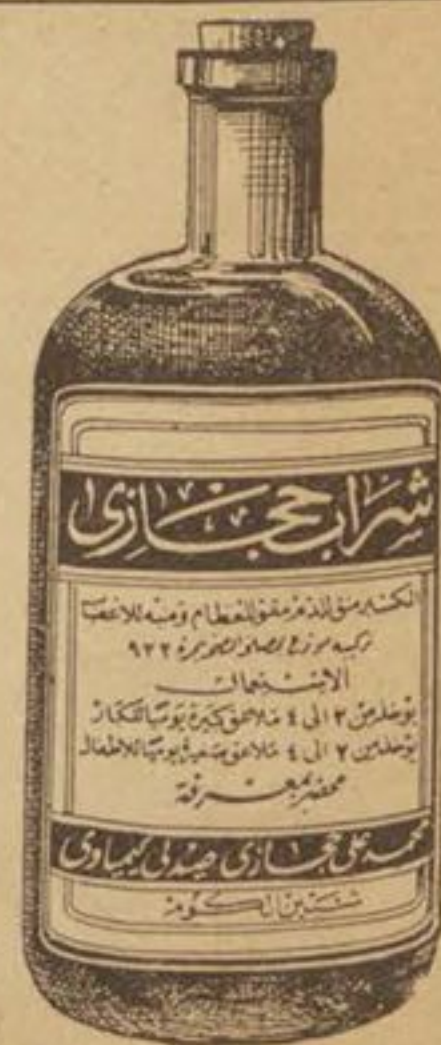 شراب حجازى
الكشاير منق للدم مقو للعظام ومنبه للاعصاب
تركيبه مودع لمصلحة الصحة نمرة ٩٢٢
الاستعمال
يؤخذ من ٢ الى ٤ ملاعق كبيرة يومياً للكبار
يؤخذ من ٢ الى ٤ ملاعق صغيرة يومياً للاطفال
محضر بمعرفة
محمد على حجازى صيدلى كيمياوى
شبين الكوم